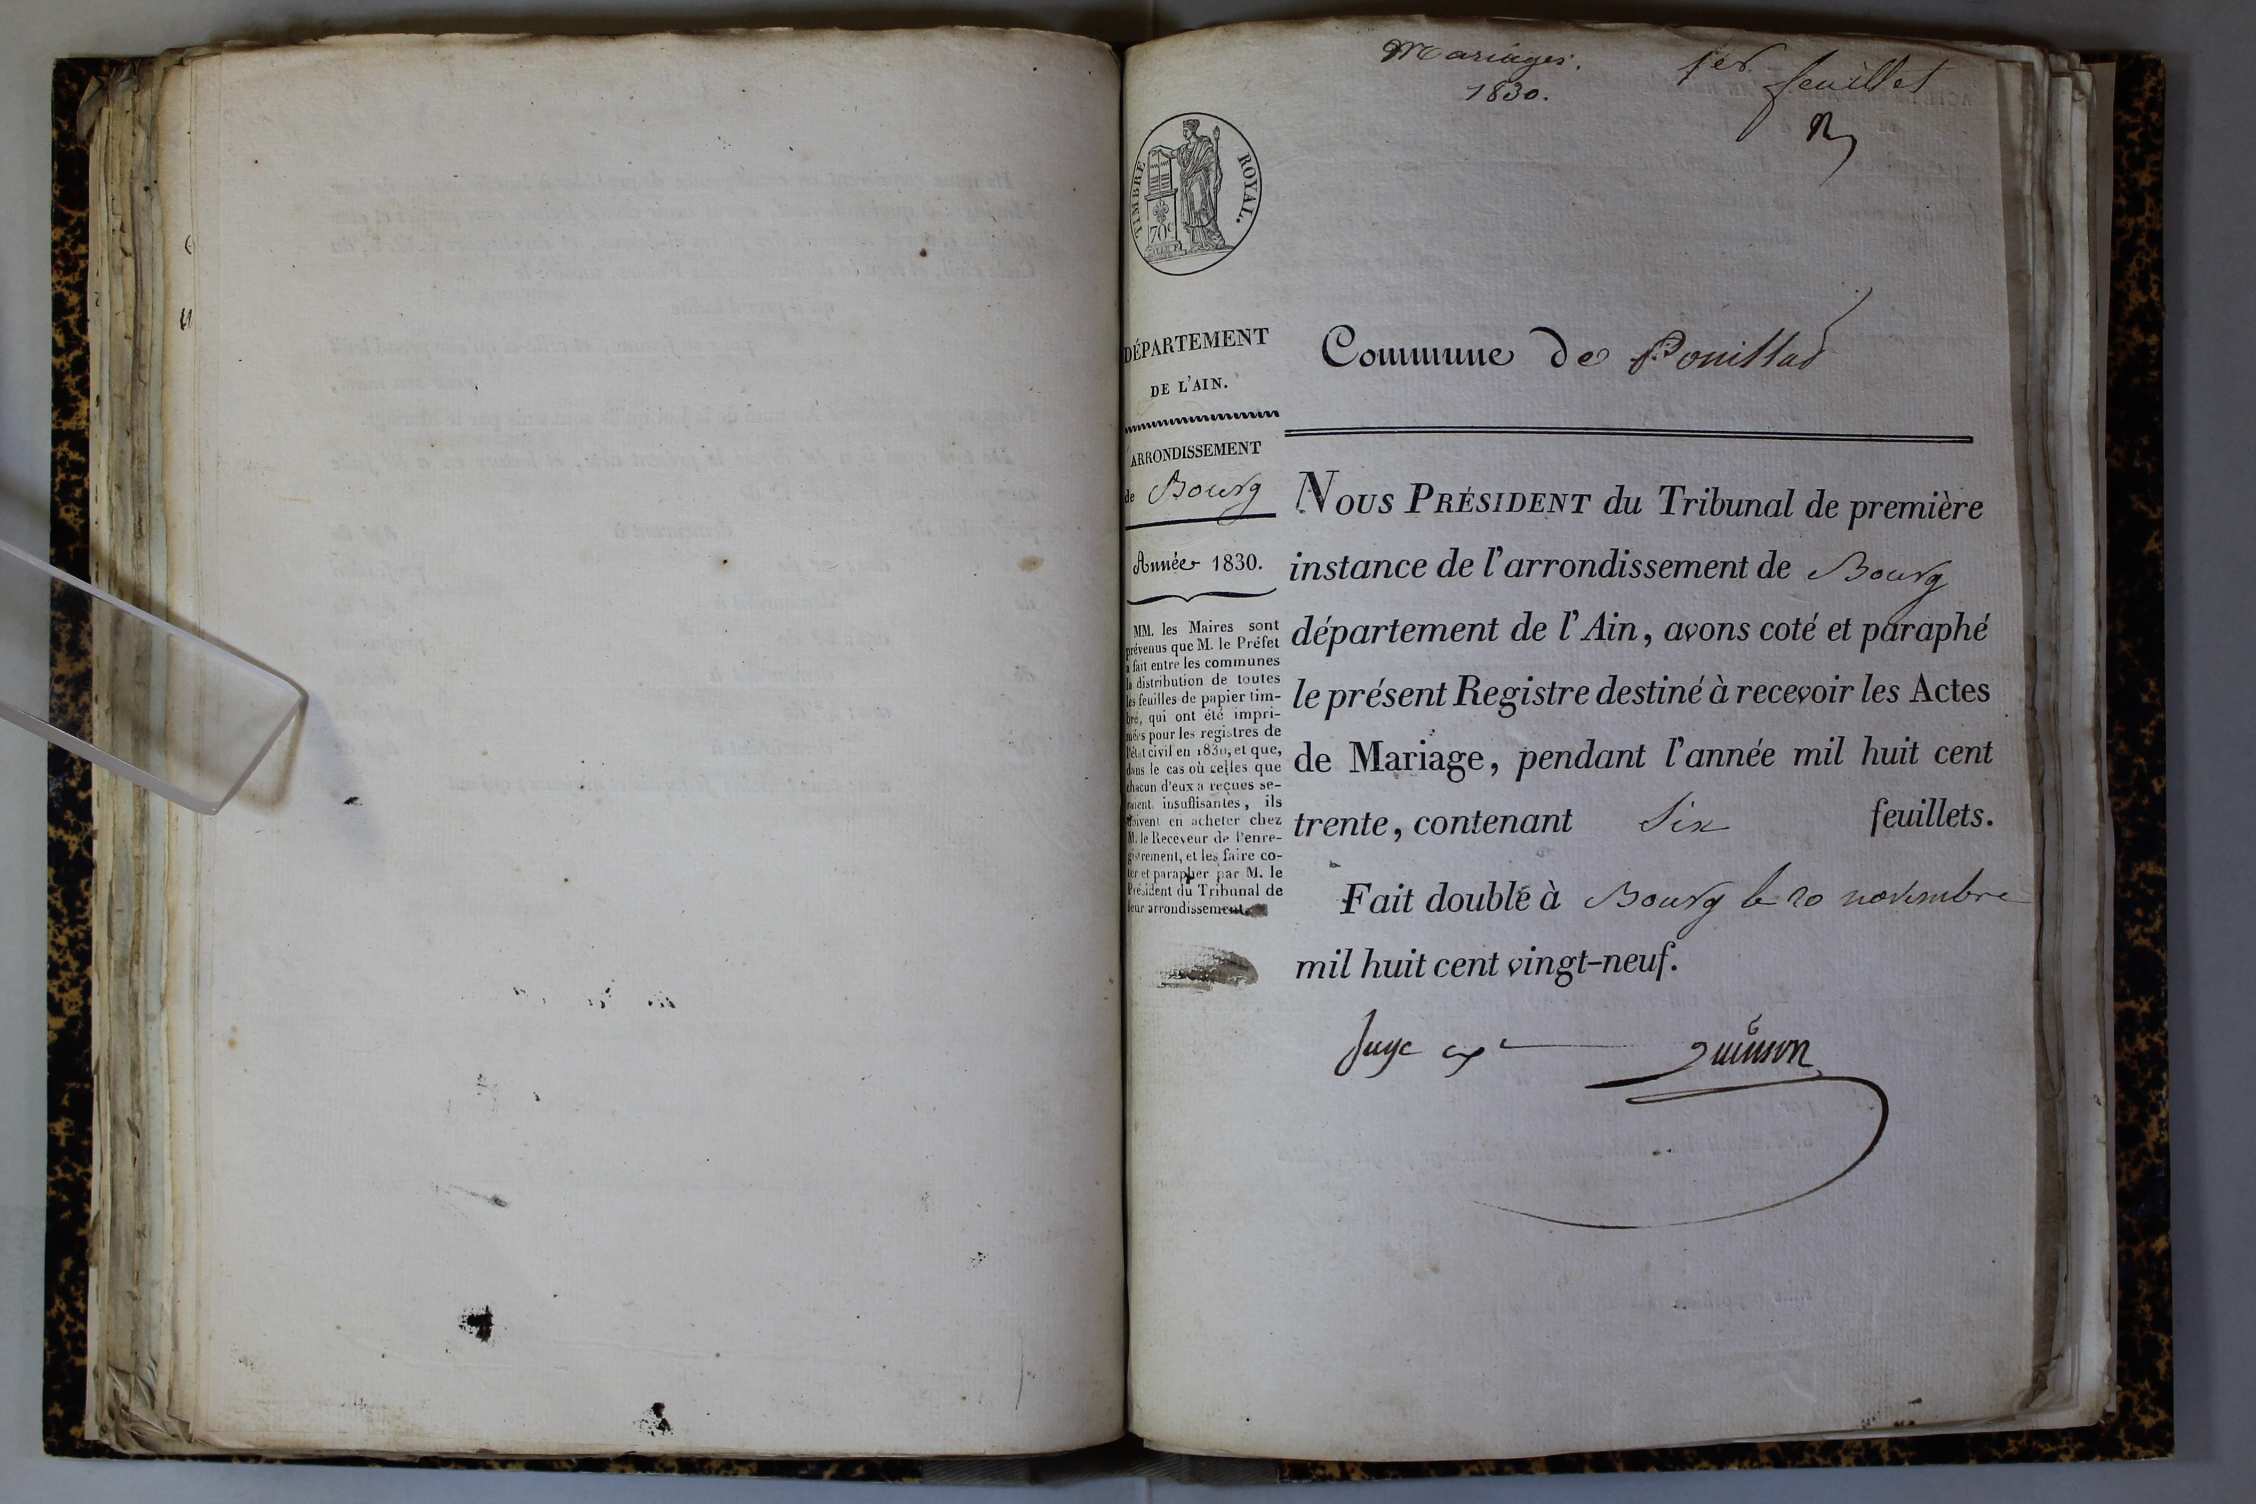 Mariages.
1830.
1er feuillet
TIMBRE ROYAL.
70c
DÉPARTEMENT
DE L'AIN.
ARRONDISSEMENT
de Bourg
Année 1830.
MM. les Maires sont
prévenus que M. le Préfet
a fait entre les communes
la distribution de toutes
les feuilles de papier tim-
bré, qui ont été impri-
mées pour les registres de
l'état civil en 1830, et que,
dans le cas où celles que
chacun d'eux a reçues se-
raient insuffisantes, ils
doivent en acheter chez
M. le Receveur de l'enre-
gistrement, et les faire co-
ter et parapher par M. le
Président du Tribunal de
leur arrondissement.
Commune de Pouillad
NOUS PRÉSIDENT du Tribunal de première
instance de l'arrondissement de Bourg
département de l'Ain, avons coté et paraphé
le présent Registre destiné à recevoir les Actes
de Mariage, pendant l'année mil huit cent
trente, contenant Six feuillets.
Fait double à Bourg le 20 novembre
mil huit cent vingt-neuf.
Juge